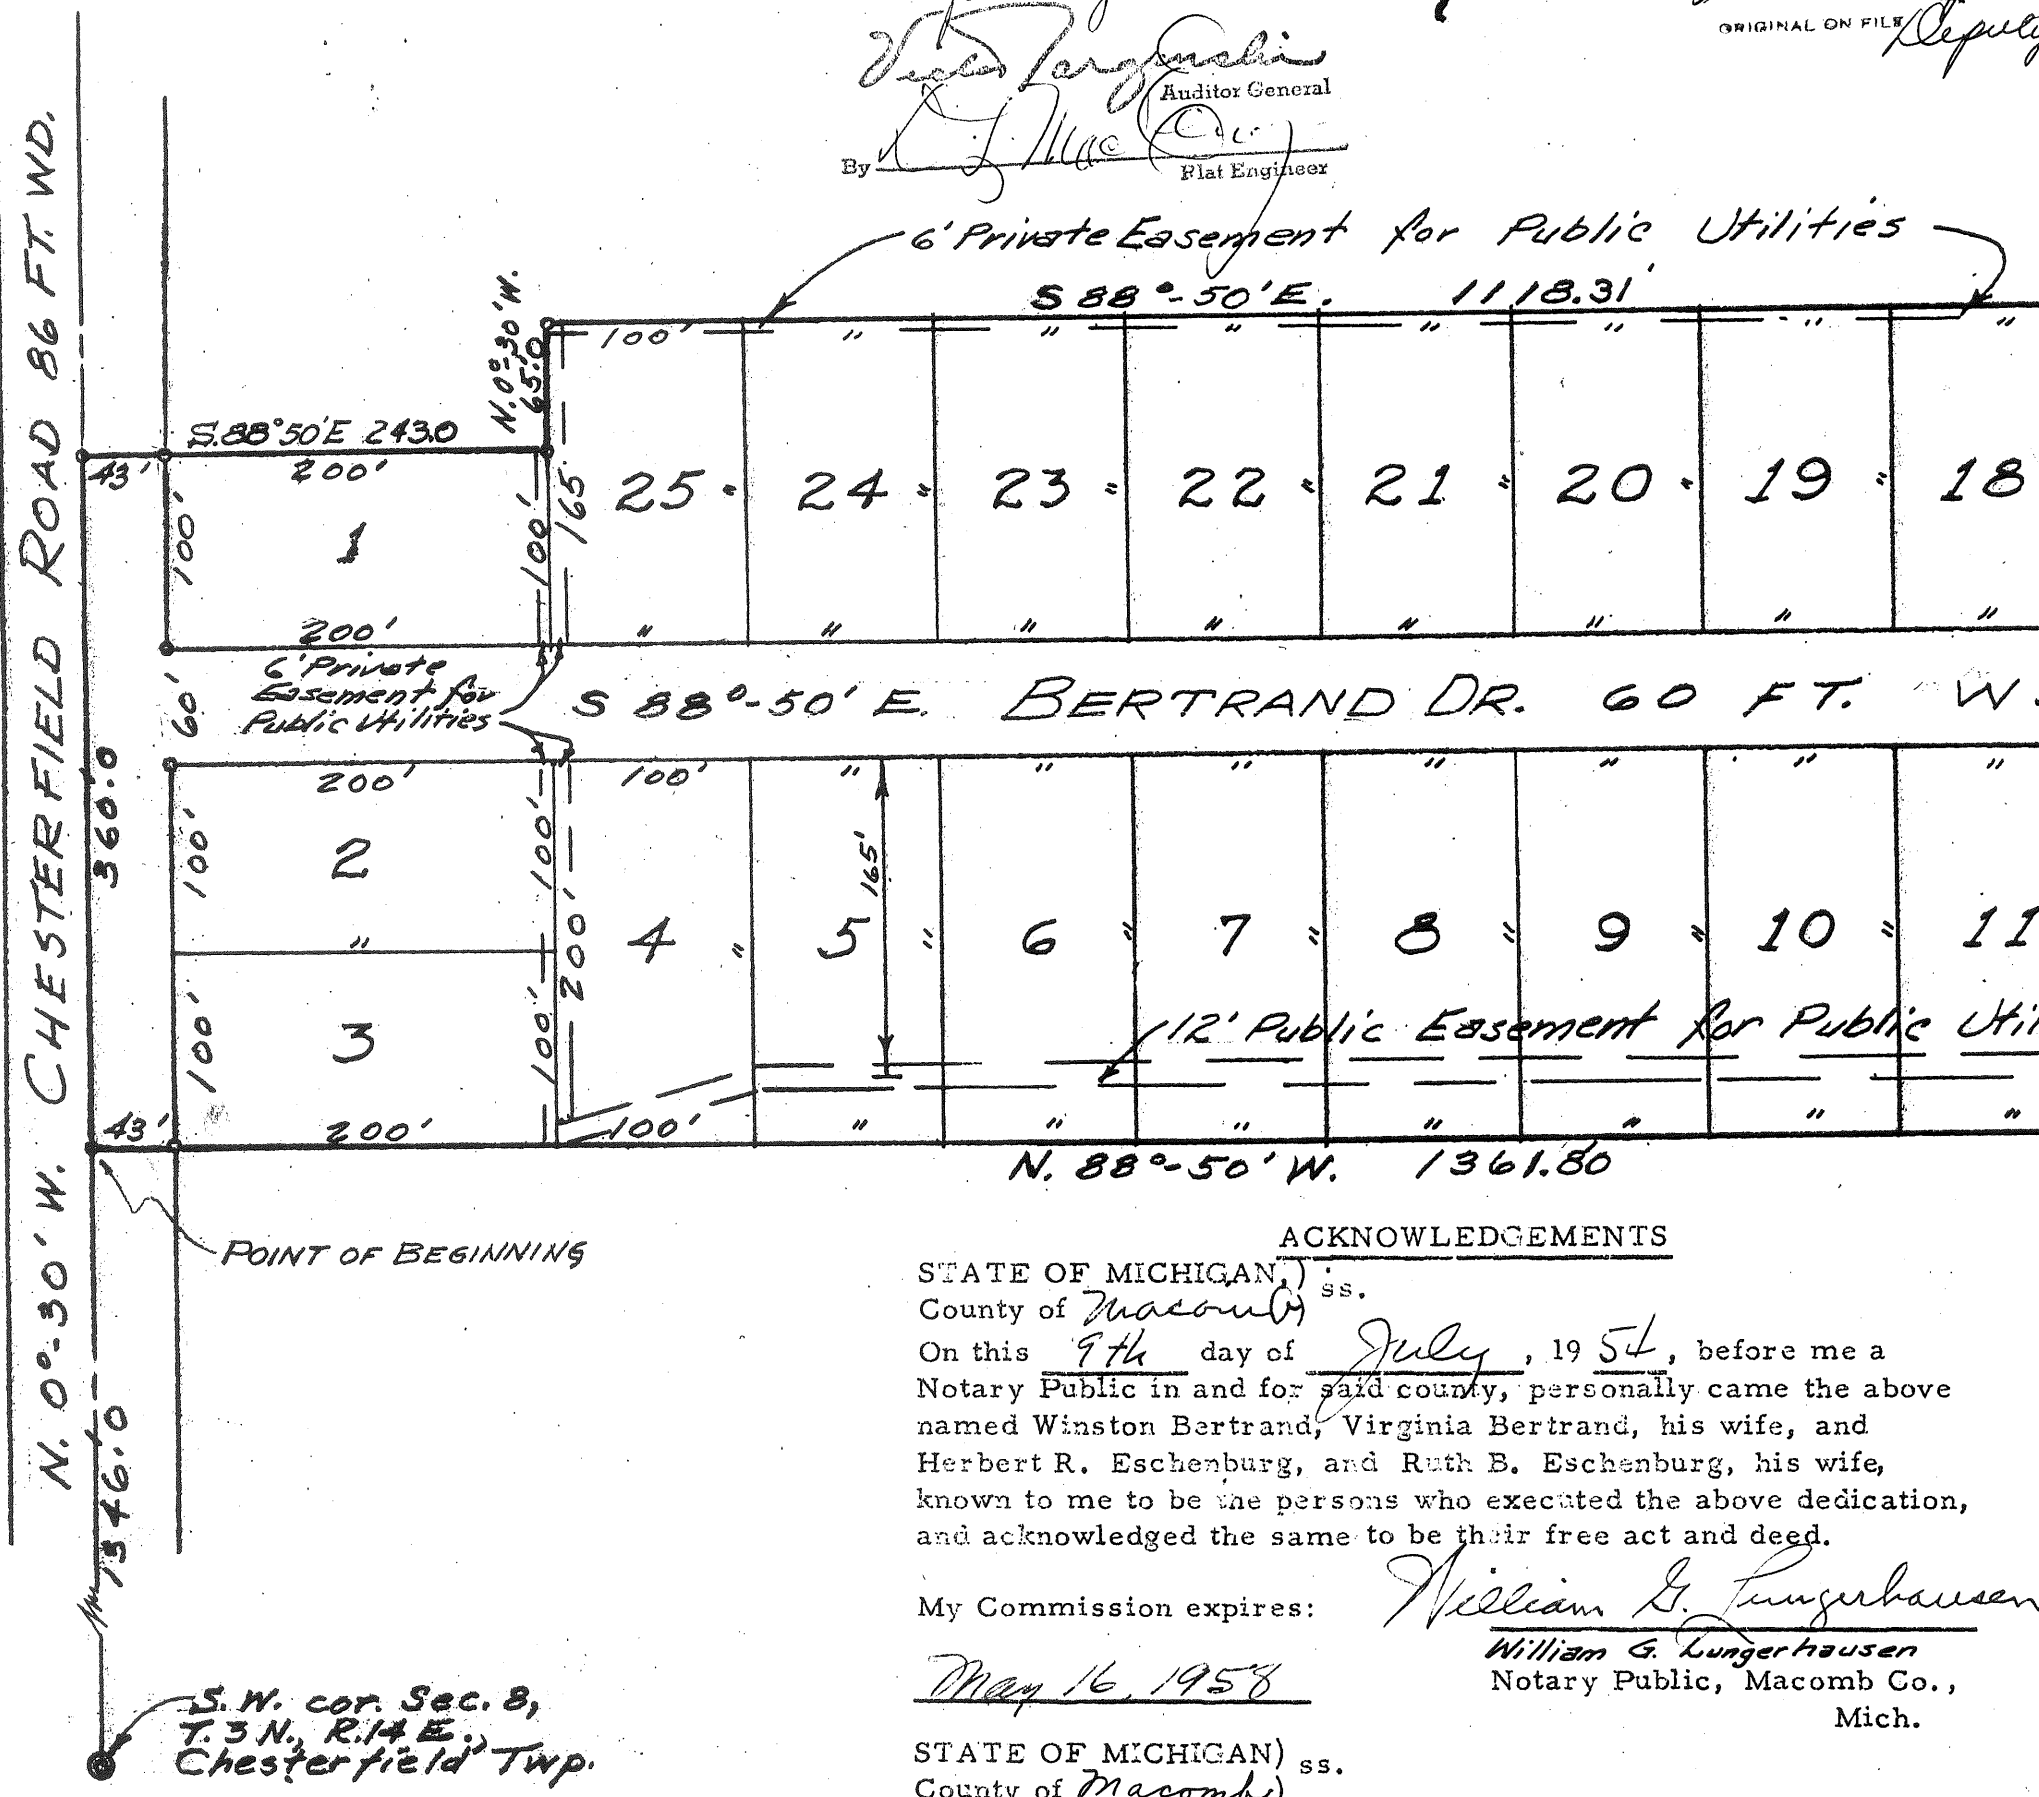 ORIGINAL ON FILE Deputy
Auditor General
By
Plat Engineer
6' Private Easement for Public Utilities
S 88°-50' E. 1118.31'
N. 0°-30' W.
65.0
100' " " " " " " "
S. 88°50' E 243.0
43' 200'
100' 1 100' 165
25 " 24 " 23 " 22 " 21 " 20 " 19 " 18
200' " " " " " " " "
6' Private
Easement for
Public Utilities
60'
S 88°-50' E. BERTRAND DR. 60 FT. W.
CHESTERFIELD ROAD 86 FT. WD.
N. 0°-30' W.
360.0
200' 100' " " " " " " "
100' 2 100'
165'
200'
"
4 " 5 " 6 " 7 " 8 " 9 " 10 " 11
12' Public Easement for Public Uti
100' 3 100'
43' 200' 100' " " " " " " "
N. 88°-50' W. 1361.80
POINT OF BEGINNING
1346.0
S. W. cor. Sec. 8,
T. 3 N., R. 14 E.,
Chesterfield Twp.
ACKNOWLEDGEMENTS
STATE OF MICHIGAN,) ss.
County of Macomb)
On this 9th day of July, 19 54, before me a
Notary Public in and for said county, personally came the above
named Winston Bertrand, Virginia Bertrand, his wife, and
Herbert R. Eschenburg, and Ruth B. Eschenburg, his wife,
known to me to be the persons who executed the above dedication,
and acknowledged the same to be their free act and deed.
My Commission expires:
William G. Lungerhausen
William G. Lungerhausen
May 16, 1958
Notary Public, Macomb Co.,
Mich.
STATE OF MICHIGAN) ss.
County of Macomb)